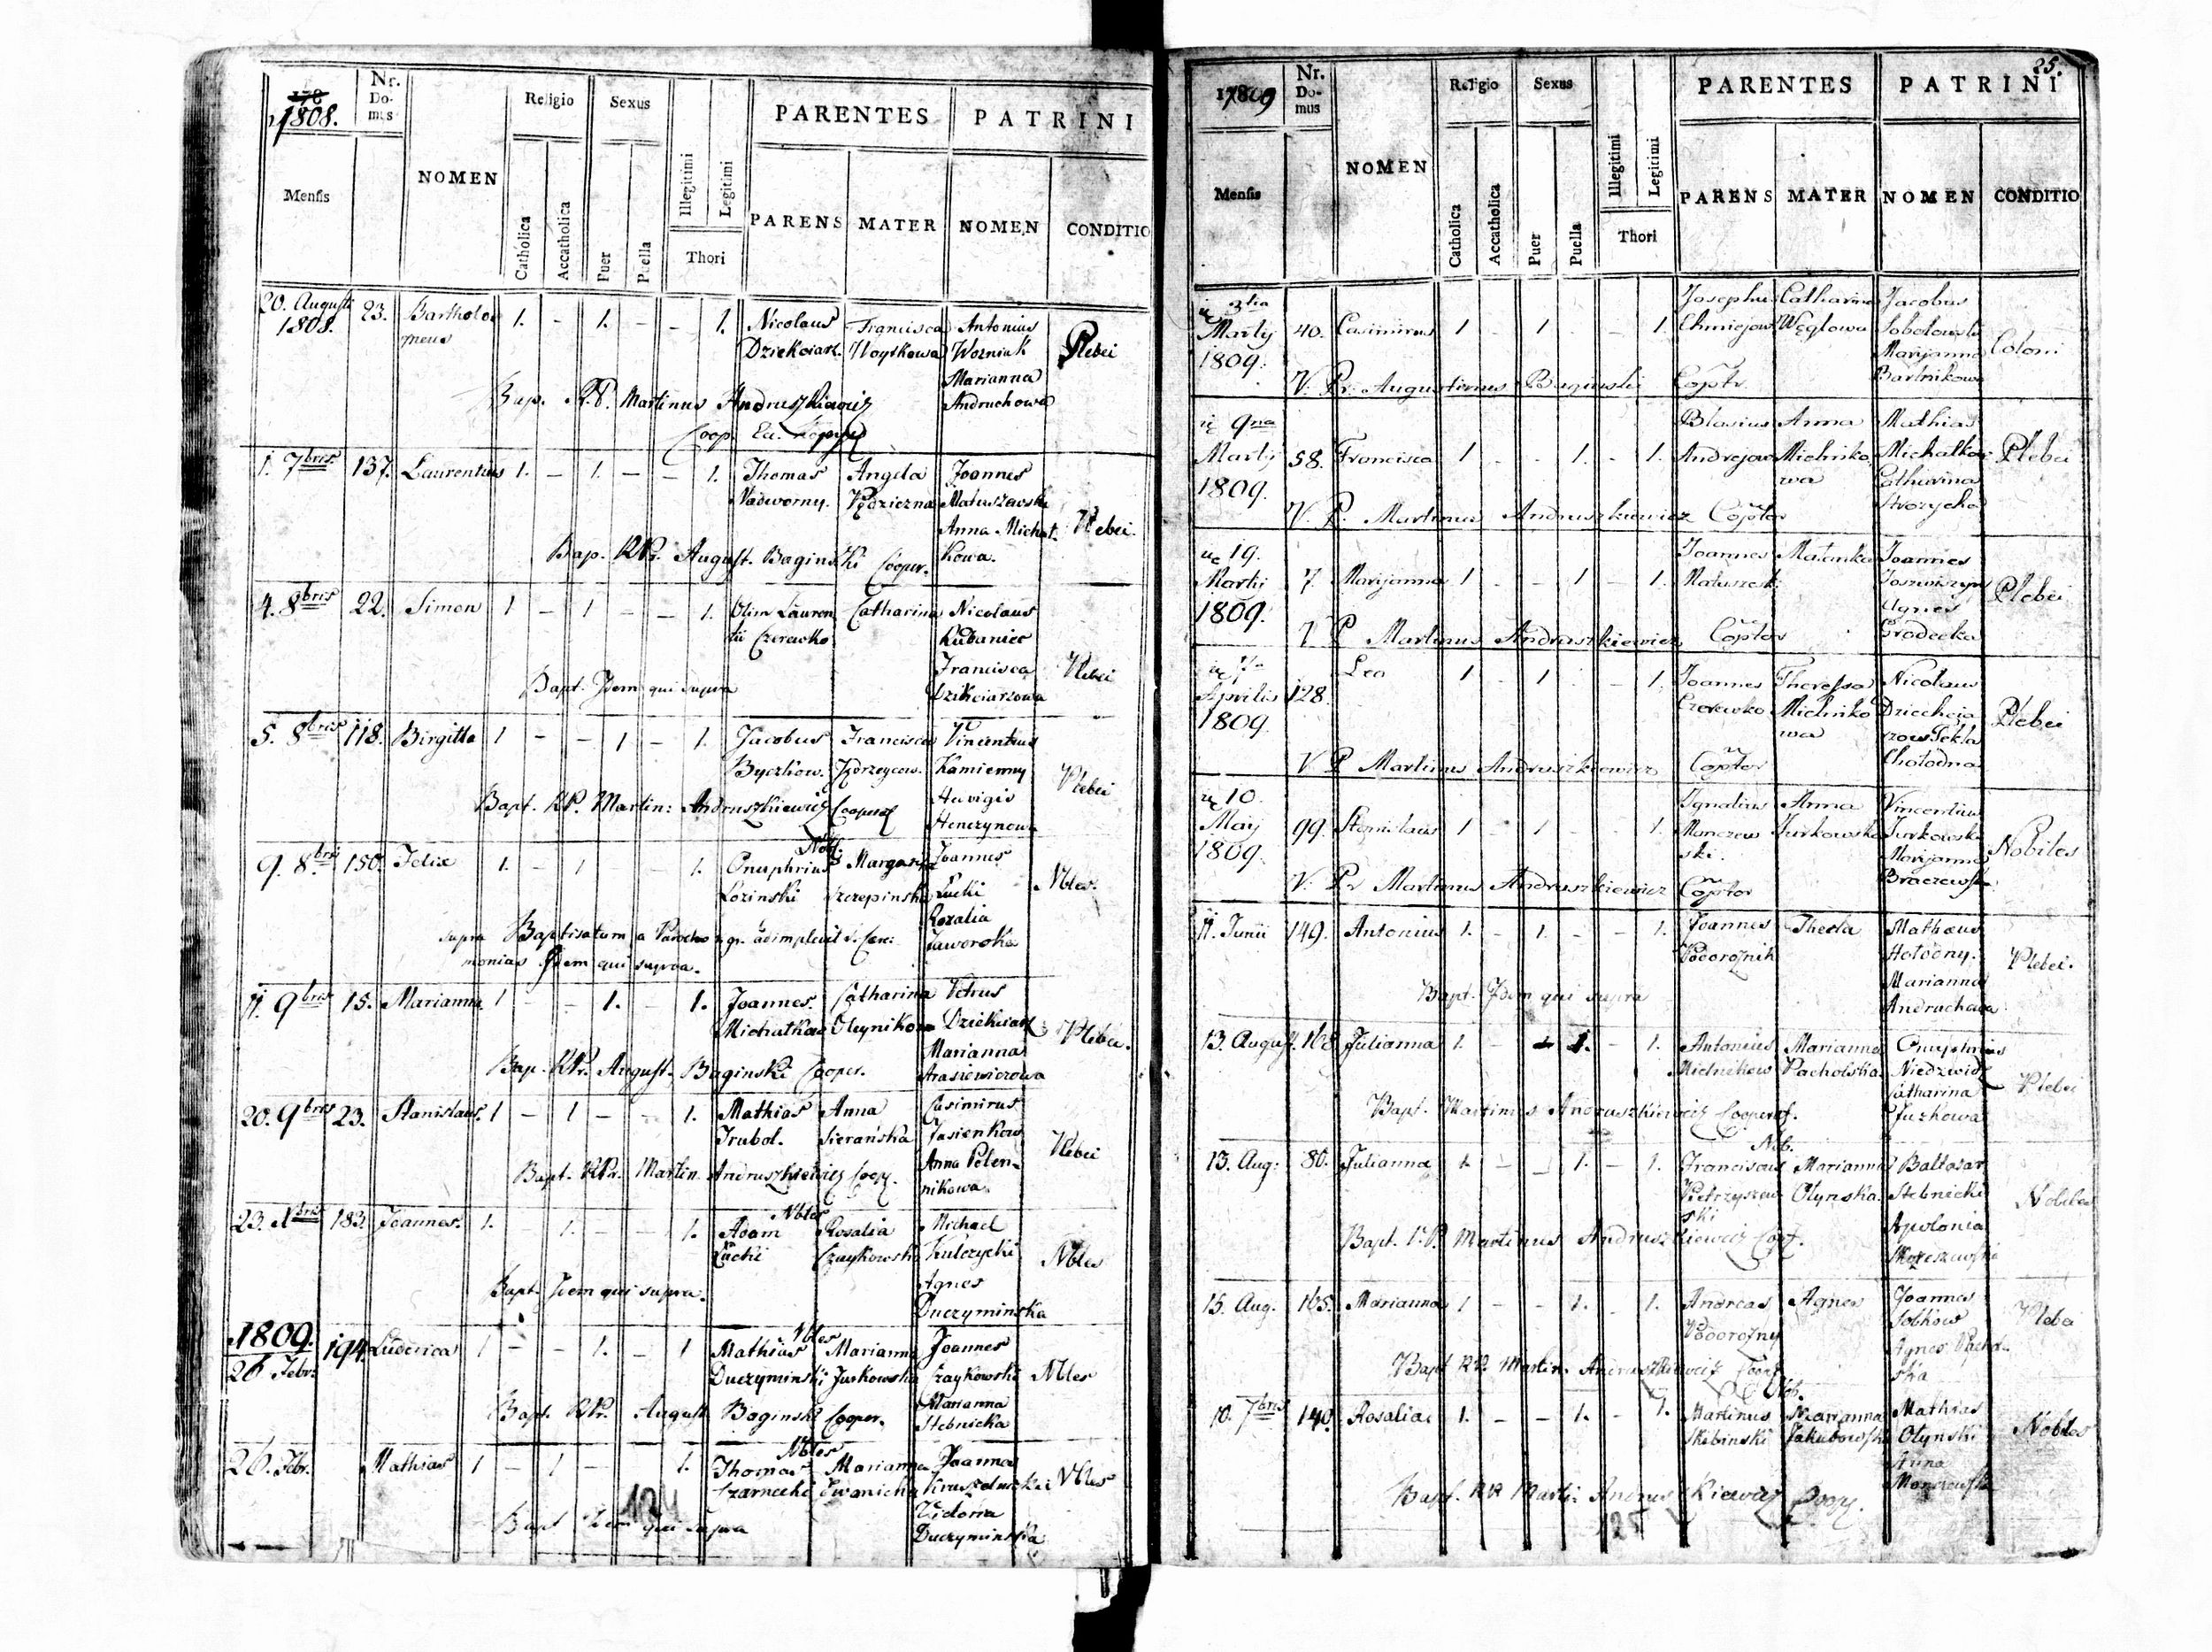 178
1808.
Nr. Domus
NOMEN
Religio
Sexus
PARENTES
PATRINI
Mensis
Catholica
Accatholica
Puer
Puella
Illegitimi
Legitimi
Thori
PARENS MATER NOMEN CONDITIO
20. Augusti 23. Bartholo 1. - 1. - - 1. Nicolaus Francisca Antonius
1808. meus Dziekciarz. Woytkowa Wozniak Plebei
Marianna
Bap. R.P. Martinus Andruszkiewicz Andruchowa
Coop.
1. 7bris 137. Laurentius 1. - 1. - - 1. Thomas Angela Joannes
Nadworny. Matuszewski
Anna Michat. Plebei.
Bap. RPr. August. Baginski Cooper. kowa.
4. 8bris 22. Simon 1 - 1 - - 1. Olim Lauren Catharina Nicolaus
tii Czerewko. Kubaniec
Francisca Plebei
Bapt. Idem qui supra
5. 8bris 118. Birgitta 1 - - 1 - 1. Jacobus Francisca Vincentius
Byczkow. Kamienny
Plebei
Bapt. RP. Martin: Andruszkiewicz Cooper Huvigis
Henczynowa
Nob.
9. 8bris 150. Felix 1. - 1 - - 1. Onuphrius Margarita Joannes
Lozinski Szczepinska Lucki Nbles.
Rozalia
supra Baptisatum a Parocho adimplevit S. Cere: Jaworska
monias Idem qui supra.
11. 9bris 15. Marianna 1 - - 1. - 1. Joannes Catharina Petrus
Michatkow Oleynikowa Dziekciarz Plebei.
Marianna
Bap. RPr. August. Baginski Cooper.
20. 9bris 23. Stanislaus. 1 - 1 - - 1. Mathias Anna Casimirus
Trubol. Sieranska Jasienkow Plebei
Bapt. RPr. Martin Andruszkiewicz Coop. Anna Pelen-
nikowa.
Nbles
23. Xbris 183. Joannes. 1. 1. - - 1. Adam Rosalia Michael
Lucki Czaykowska Kulczycki Nbles
Bapt. Idem qui supra. Agnes
Duczyminska
1809. Nbles
26 Febr. 194 Ludovica 1 - - 1. - 1 Mathias Marianna Joannes
Duczyminski Jurkowska Czaykowski Nbles
Bapt. RPr. August Baginski Cooper. Marianna
Stebnicka
Nbles
26. Febr. Mathias 1 - 1 - 1. Thomas Marianna
Czarnecki Nbles
124
Bapt Idem qui supra Duczyminska
25.
17809
Nr. Domus
NOMEN
Religio
Sexus
PARENTES
PATRINI
Mensis
Catholica
Accatholica
Puer
Puella
Illegitimi
Legitimi
Thori
PARENS MATER NOMEN CONDITIO
3tia Josephus Catharina Jacobus
Martij 40. Casimirus 1 1 - - 1. Chmiejow Węglowa Sobolowski
1809. Marijanna Coloni
V. Pr. Augustinus Baginski Coptr. Bartnikowa
9na Blasius Anna Mathias
Martij 58. Francisca 1 - - 1. - 1. Andrejow Michniko Michatkow Plebei
1809. wa Catharina
V. P. Martinus Andruszkiewicz Coptor
19. Joannes Joannes
Martij 7. Marijanna 1 - - 1 - 1. Matuszeski
1809. Agnes Plebei
V P Martinus Andruszkiewicz Coptor Grodecka
Leo 1 1 - - 1. Joannes Theressa Nicolaus
Aprilis 128. Czerewko Michniko Dziechcia
1809 wa rzow Tekla Plebei
V P Martinus Andruszkiewicz Coptor Chołodna
10. Ignatius Anna Vincentius
Maij 99. Stanislaus 1 - 1 - - 1. Manczew Jurkowska Jurkowski
1809. ski. Marijanna Nobiles
V. Pr Martinus Andruszkiewicz Coptor Braczewska
11. Junii 149. Antonius 1. - 1. - - 1. Joannes Thecla Mathaeus
Podorożnik Hołodny. Plebei.
Marianna
Bapt. Idem qui supra Andruchowa
13. August. 168. Julianna 1. - 1. - 1. Antonius Marianna Onuphrius
Michnikow Pacholska. Niedzwidz Plebei
Catharina
Bapt. Martinus Andruszkiewicz Cooper. Juzkowa
Nob.
13. Aug: 80. Julianna 1. - - 1. - 1. Franciscus Marianna Baltasar
Pietrzyszew Olynska. Stebnicki Nobiles
ski
Bapt. V.P. Martinus Andruszkiewicz Coop. Apolonia
15. Aug. 165. Marianna 1 - - 1. - 1. Andreas Agnes Joannes
Podorożny Sobkow Plebei
Agnes
Bapt RP. Martin. Andruszkiewicz Coop. ska
Nob.
10. 7bris 140. Rosalia 1. - - 1. - 1. Martinus Marianna Mathias
Skibinski Jakubowska Olynski Nobiles
Anna
Bapt. RP Marti. Andruszkiewicz Coop.
125